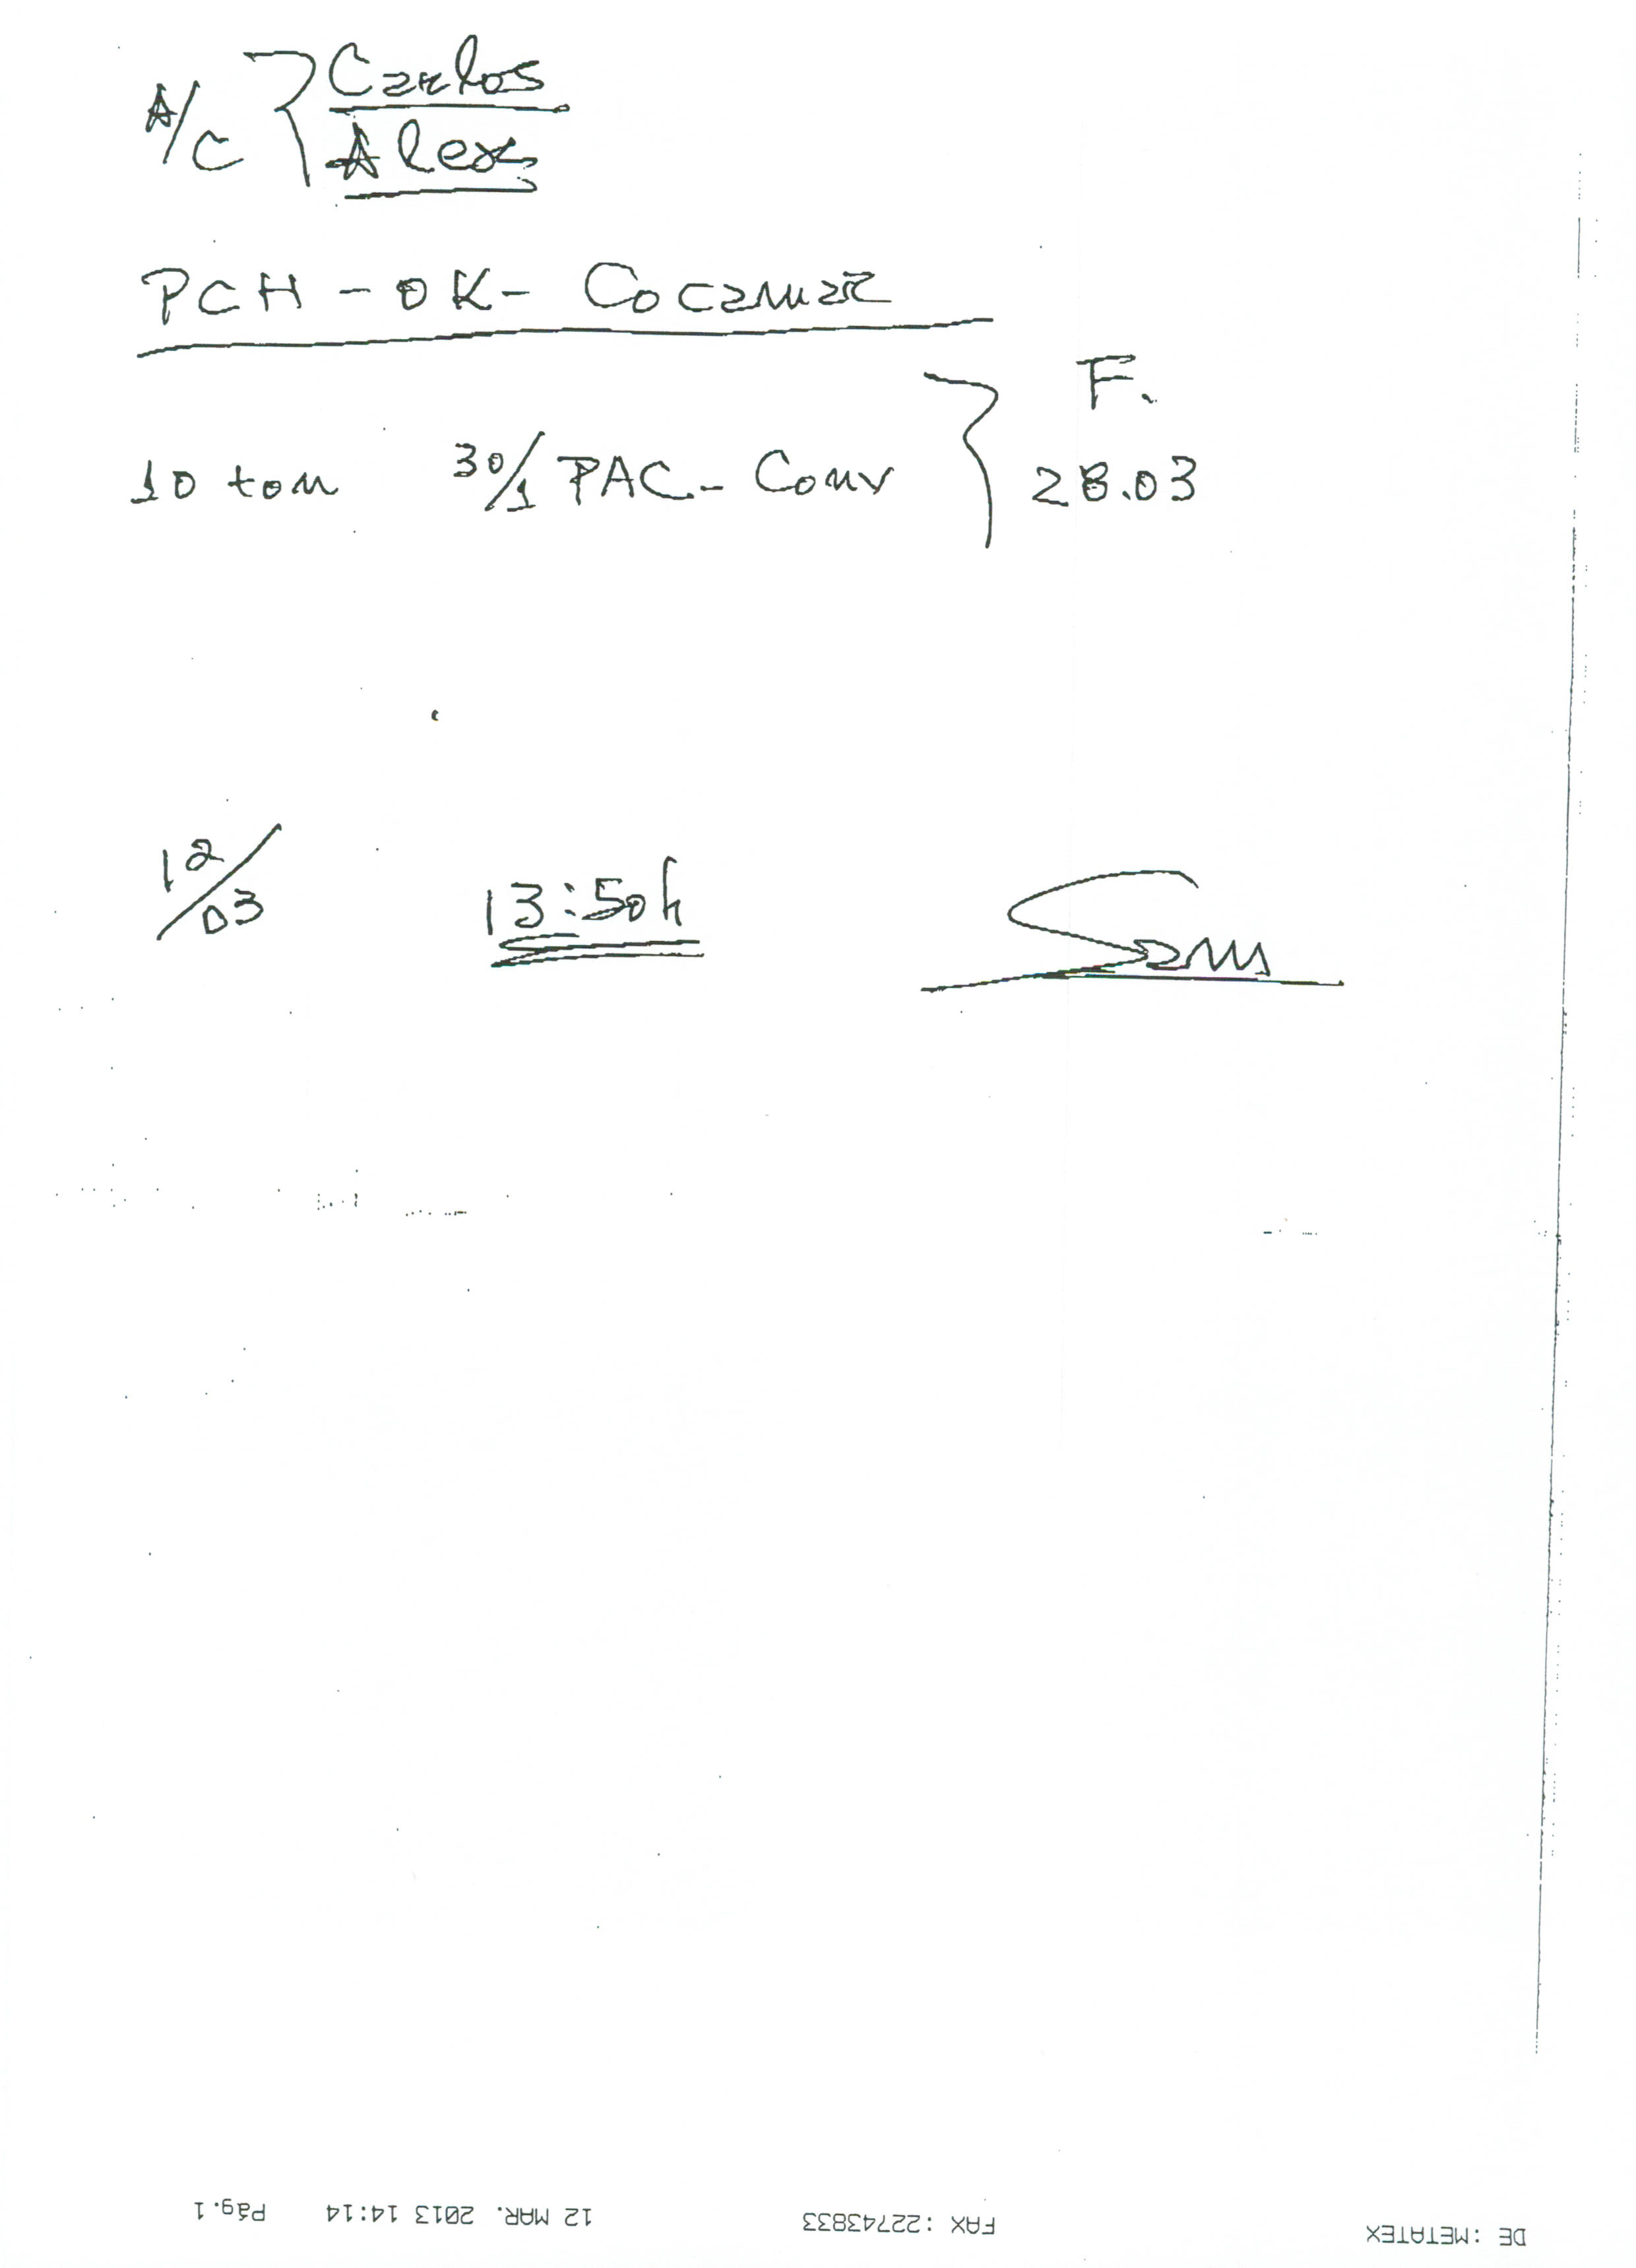 A/C } Carlos
Alex
PCH - OK - Cocamar
10 ton 30/1 PAC - Conv } F. 28.03
12/03 13:50h Sam
DE : METATEX FAX : 22743833 12 MAR. 2013 14:14 Pág.1